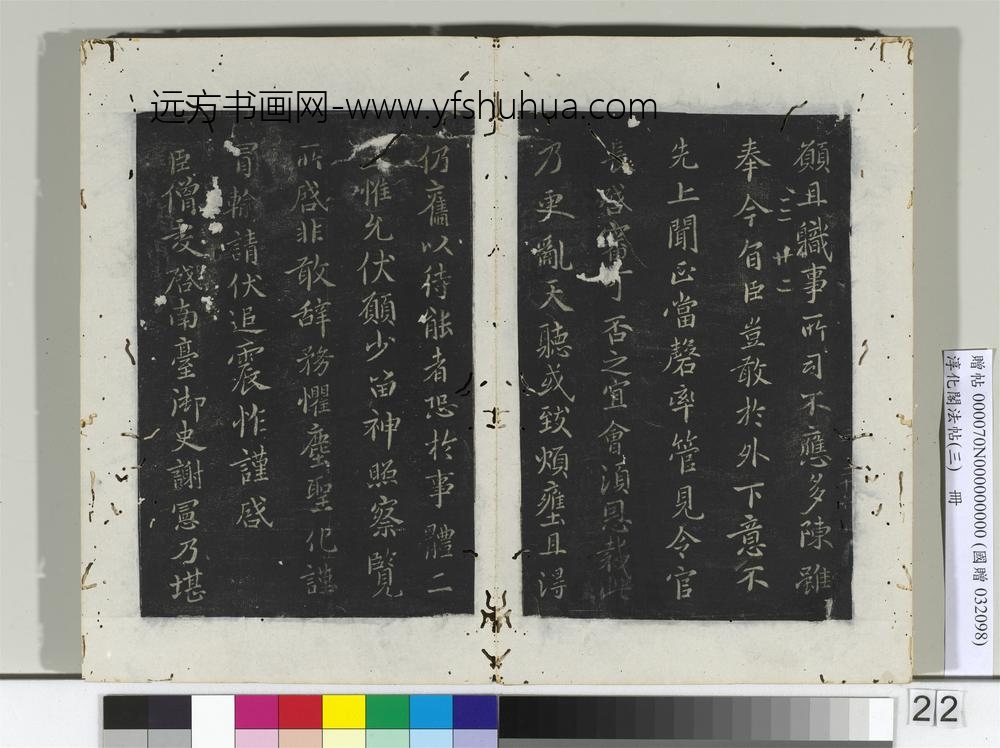 远方书画网-www.yfshuhua.com
願且職事所司不應多陳雖
三 廿二
奉今旨臣豈敢於外下意不
先上聞正當罄率管見令官
長啓審可否之宜會須恩裁此
乃更亂天聽或致煩壅且得
仍舊以待能者恐於事體二
三惟允伏願少留神照察覽
所啓非敢辞務懼塵聖化謹
冒輸請伏追震怍謹啓
臣僧虔啓南臺御史謝憲乃堪
贈帖 000070N000000000 (國贈 032098)
淳化閣法帖(三) 冊
22